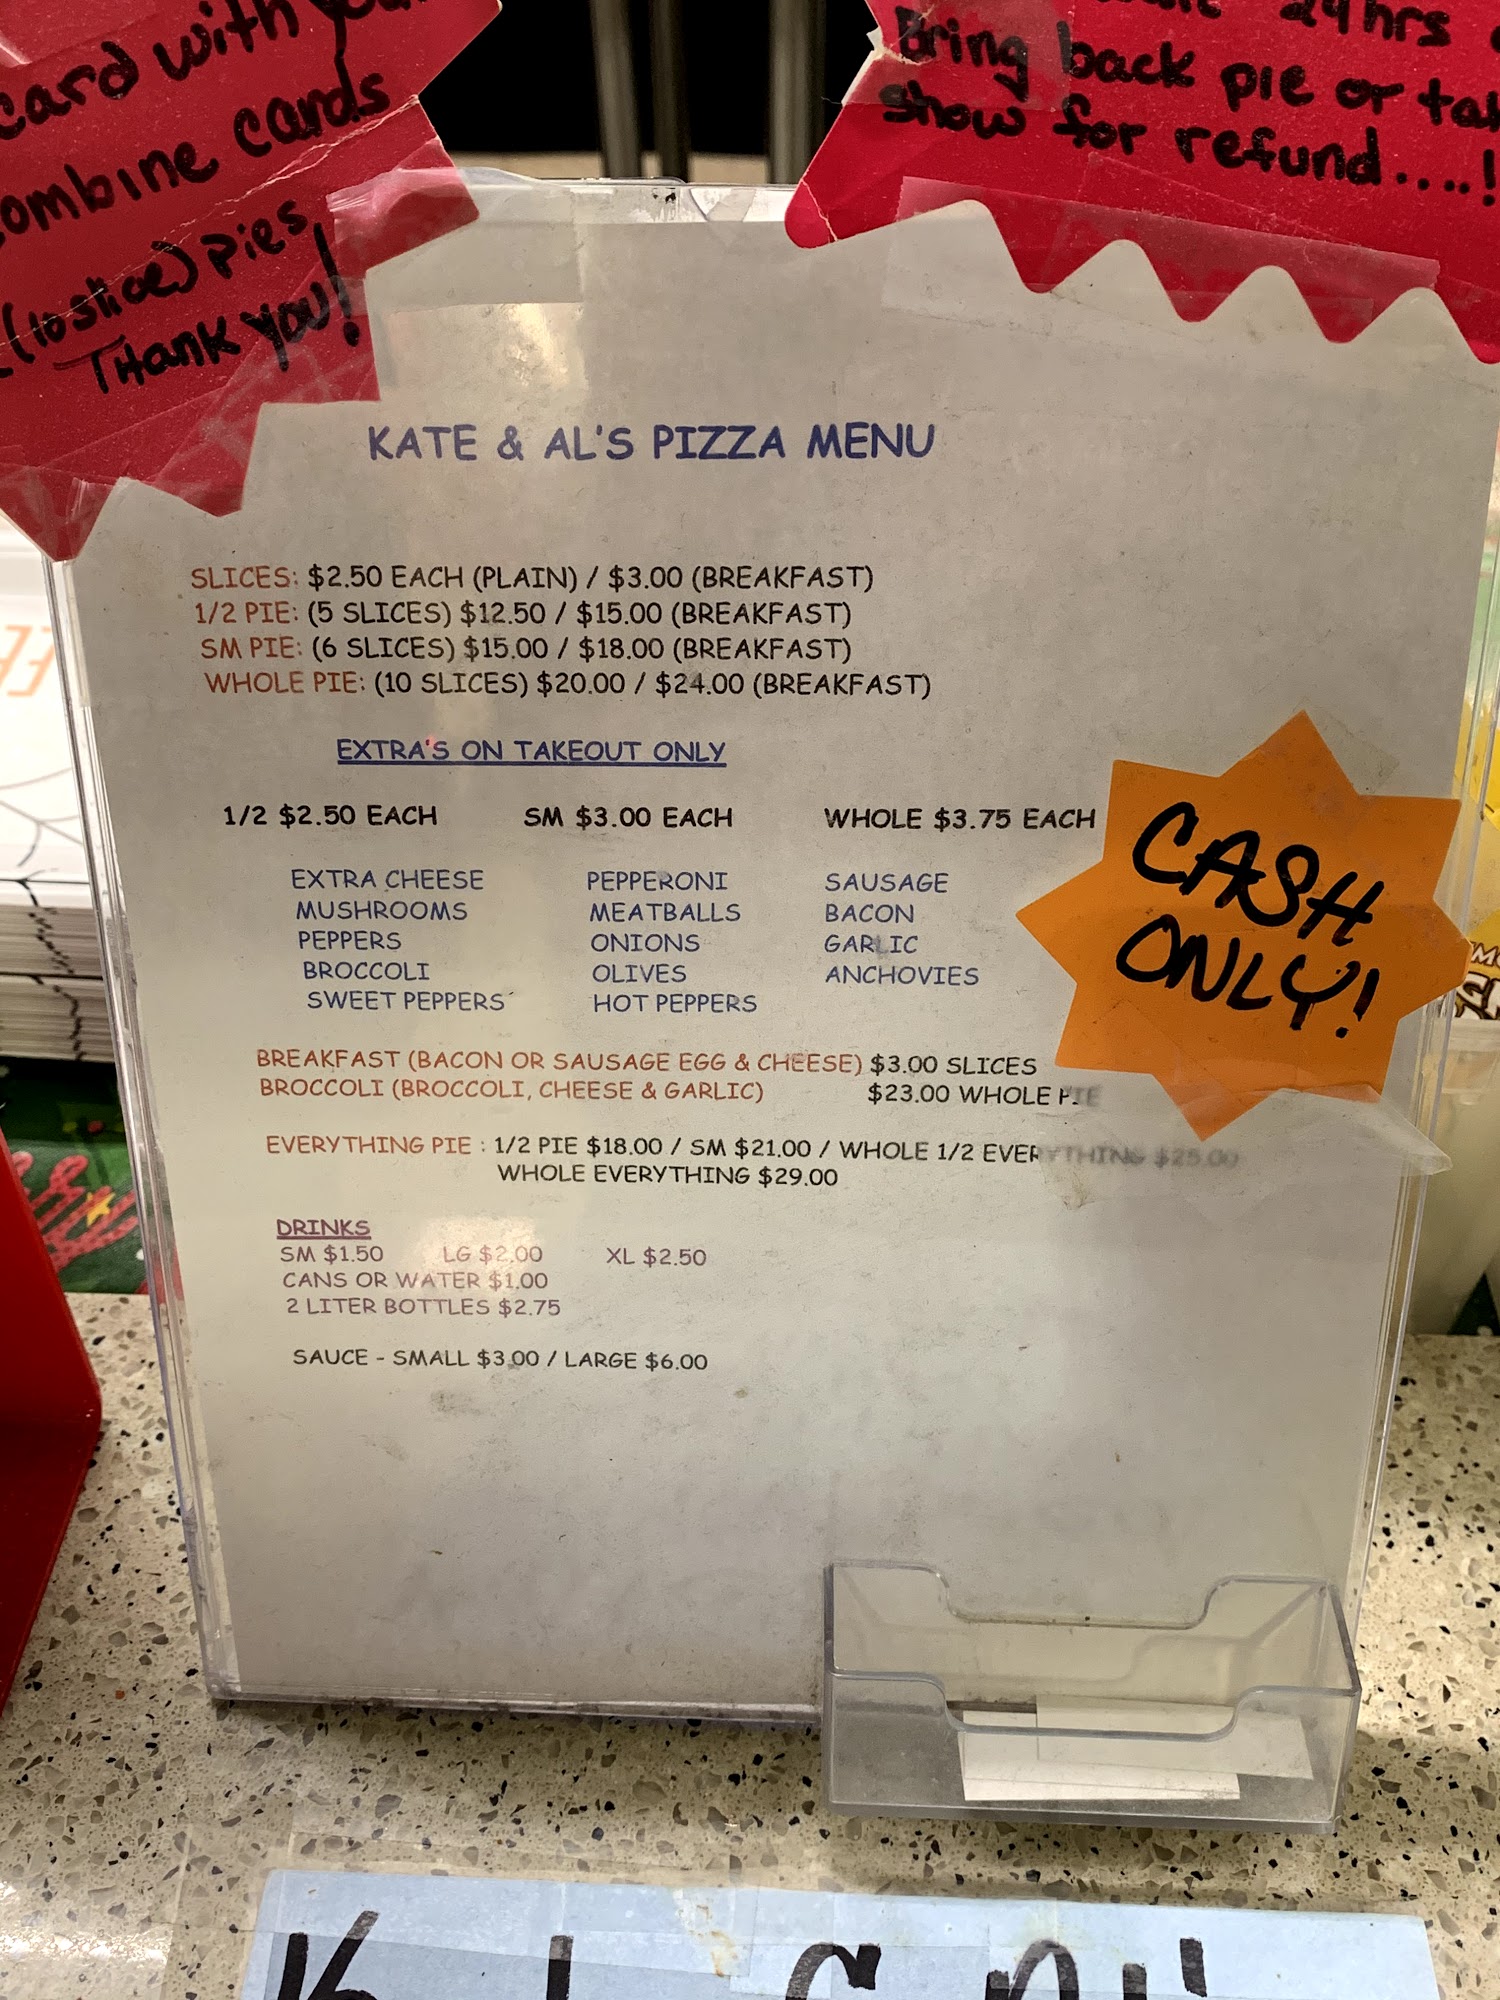 card with your
combine cards
(10 slice) pies
Thank you!
24 hrs
Bring back pie or
show for refund....!
KATE & AL'S PIZZA MENU
SLICES: $2.50 EACH (PLAIN) / $3.00 (BREAKFAST)
1/2 PIE: (5 SLICES) $12.50 / $15.00 (BREAKFAST)
SM PIE: (6 SLICES) $15.00 / $18.00 (BREAKFAST)
WHOLE PIE: (10 SLICES) $20.00 / $24.00 (BREAKFAST)
EXTRA'S ON TAKEOUT ONLY
1/2 $2.50 EACH SM $3.00 EACH WHOLE $3.75 EACH
EXTRA CHEESE PEPPERONI SAUSAGE
MUSHROOMS MEATBALLS BACON
PEPPERS ONIONS GARLIC
BROCCOLI OLIVES ANCHOVIES
SWEET PEPPERS HOT PEPPERS
CASH
ONLY!
BREAKFAST (BACON OR SAUSAGE EGG & CHEESE) $3.00 SLICES
BROCCOLI (BROCCOLI, CHEESE & GARLIC) $23.00 WHOLE PIE
EVERYTHING PIE : 1/2 PIE $18.00 / SM $21.00 / WHOLE 1/2 EVERYTHING $25.00
WHOLE EVERYTHING $29.00
DRINKS
SM $1.50 LG $2.00 XL $2.50
CANS OR WATER $1.00
2 LITER BOTTLES $2.75
SAUCE - SMALL $3.00 / LARGE $6.00